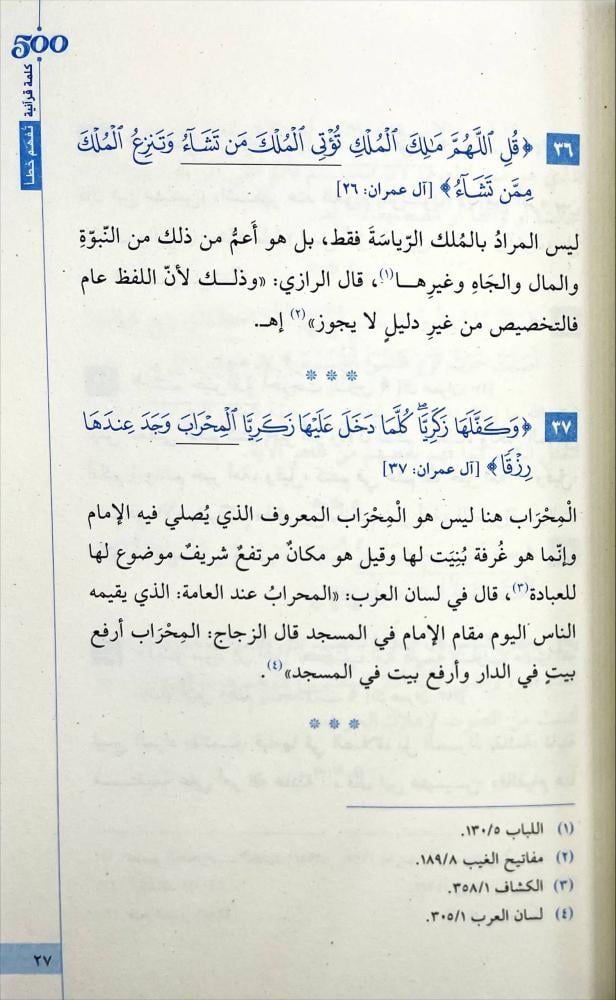 500
كلمة قرآنية
تُفهَم خطأ
٣٦ ﴿قُلِ ٱللَّهُمَّ مَٰلِكَ ٱلْمُلْكِ تُؤْتِى ٱلْمُلْكَ مَن تَشَآءُ وَتَنزِعُ ٱلْمُلْكَ
مِمَّن تَشَآءُ﴾ [آل عمران: ٢٦]
ليس المرادُ بالمُلك الرّياسَةَ فقط، بل هو أعمُّ من ذلك من النبوّةِ
والمال والجَاهِ وغيرِهـا(١)، قال الرازي: «وذلـك لأنّ اللفظ عام
فالتخصيص من غيرِ دليلٍ لا يجوز»(٢) إهـ.
* * *
٣٧ ﴿وَكَفَّلَهَا زَكَرِيَّا ۖ كُلَّمَا دَخَلَ عَلَيْهَا زَكَرِيَّا ٱلْمِحْرَابَ وَجَدَ عِندَهَا
رِزْقًا﴾ [آل عمران: ٣٧]
الْمِحْرَاب هنا ليس هو المِحْرَاب المعروف الذي يُصلي فيه الإمام
وإنّما هو غُرفة بُنِيَت لها وقيل هو مكانٌ مرتفعٌ شريفٌ موضوع لها
للعبادة(٣)، قال في لسان العرب: «المحرابُ عند العامة: الذي يقيمه
الناس اليوم مقام الإمام في المسجد قال الزجاج: المِحْرَاب أرفع
بيتٍ في الدار وأرفع بيت في المسجد»(٤).
* * *
(١) اللباب ١٣٠/٥.
(٢) مفاتيح الغيب ١٨٩/٨.
(٣) الكشاف ٣٥٨/١.
(٤) لسان العرب ٣٠٥/١.
٢٧